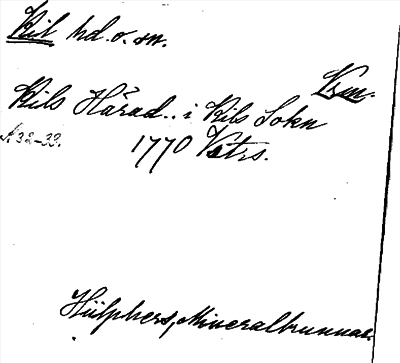 Kil hd. o. sn.
Vrm.
Kils Härad.. i Kils Sokn
A 32-33.
1770 Vttrs.
Hülphers, Mineralbrunnar.